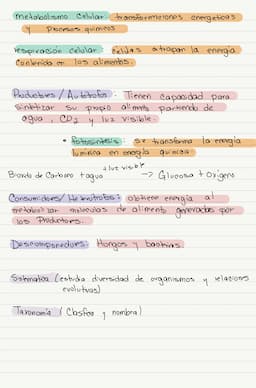 metabolismo celular: transformaciones energeticas
y procesos quimicos
respiración celular: células atrapan la energia
contenida en los alimentos.
Productores / Autótrofos: Tienen capacidad para
sintetizar su propio alimento partiendo de
agua, CO2 y luz visible
• Fotosintesis: se transforma la energia
luminica en energia quimica
+ luz visible
Bioxido de Carbono + agua → Glucosa + Oxigeno
Consumidores/ Heterotrofos: obtiene energia al
metabolizar moleculas de alimento generadas por
los Productores.
Descomponedores: Hongos y bacterias
Sistematica (estudia diversidad de organismos y relaciones
evolutivas)
Taxonomia (Clasifica y nombra)